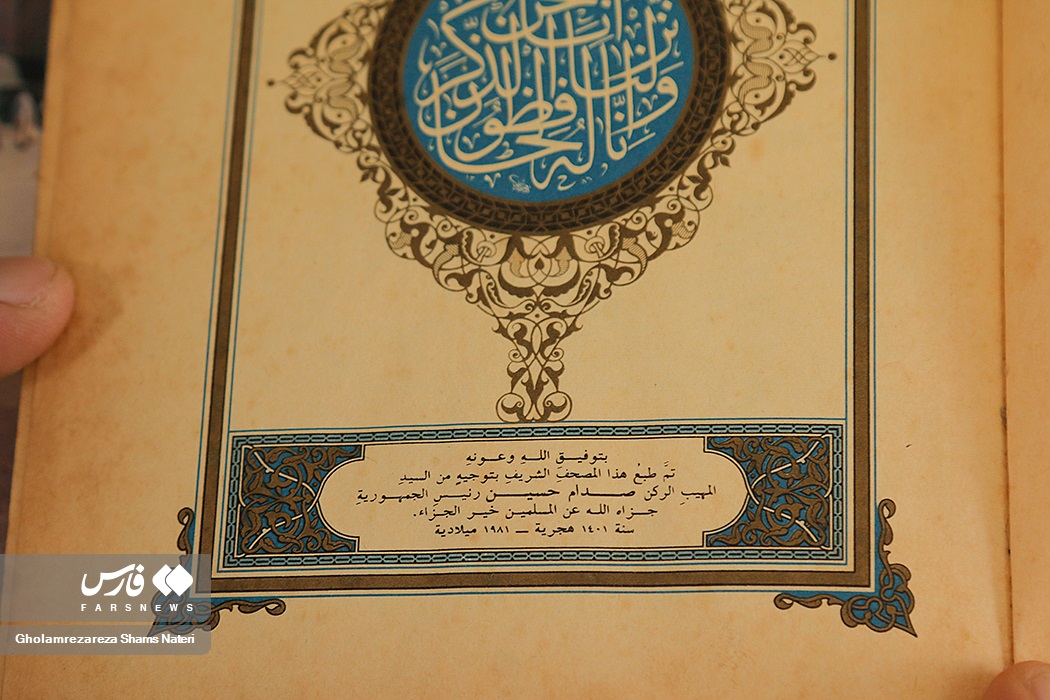 نزلنا الذكر
وإنا له لحافظون
بتوفيـقِ اللـهِ وعـونهِ
تمَّ طبعُ هذا المصحفِ الشريفِ بتوجيهٍ من السيدِ
المهيبِ الركنِ صـدام حسيـن رئيسِ الجمهوريةِ
جـزاه الله عن المسلمين خيـر الجـزاء.
سنة ١٤٠١ هجرية — ١٩٨١ ميلادية
فارس
FARSNEWS
Gholamrezareza Shams Nateri